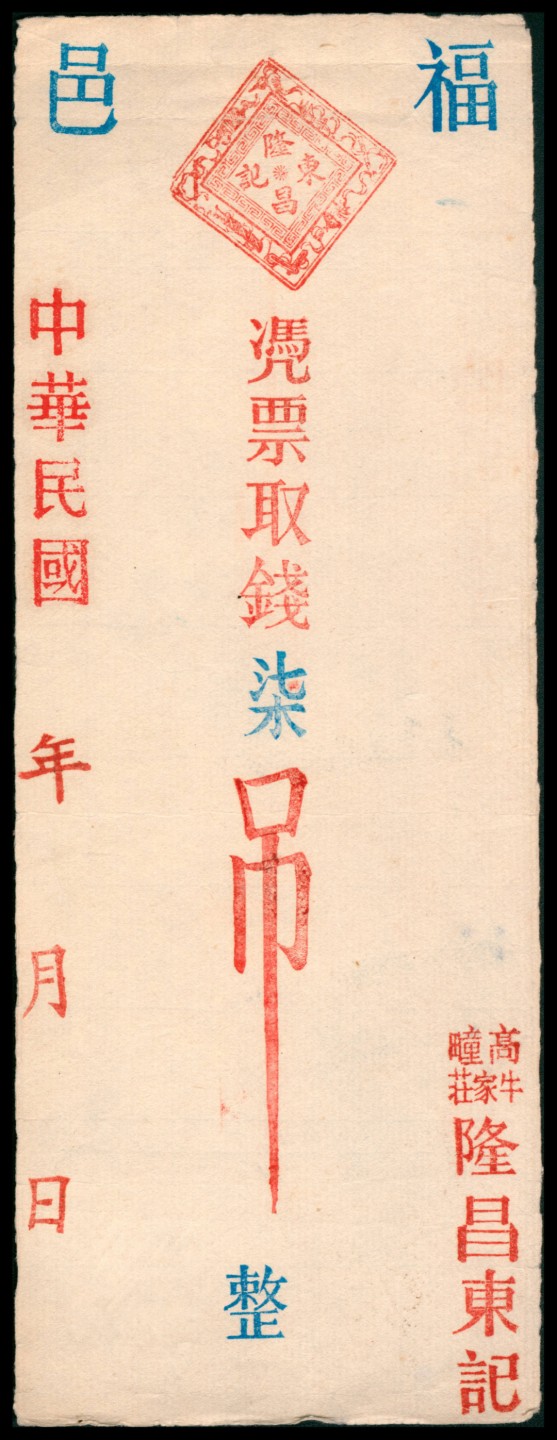 福邑
髙疃
牛家荘
隆昌東記
隆昌東記
凴票取錢柒吊整
中華民國 年 月 日